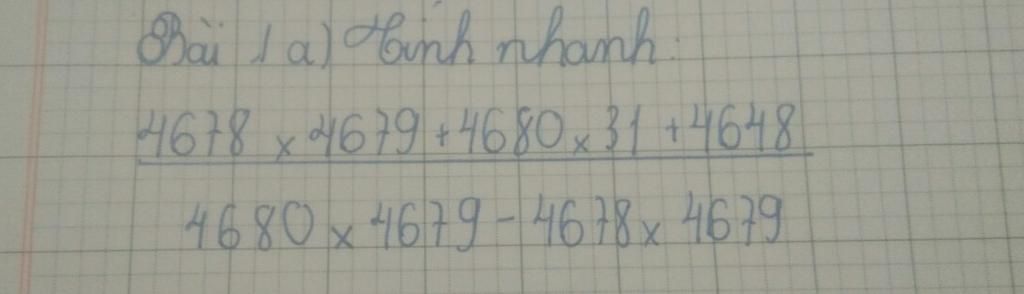 Bài 1 a) Tính nhanh:
4678 x 4679 + 4680 x 31 + 4648
4680 x 4679 - 4678 x 4679